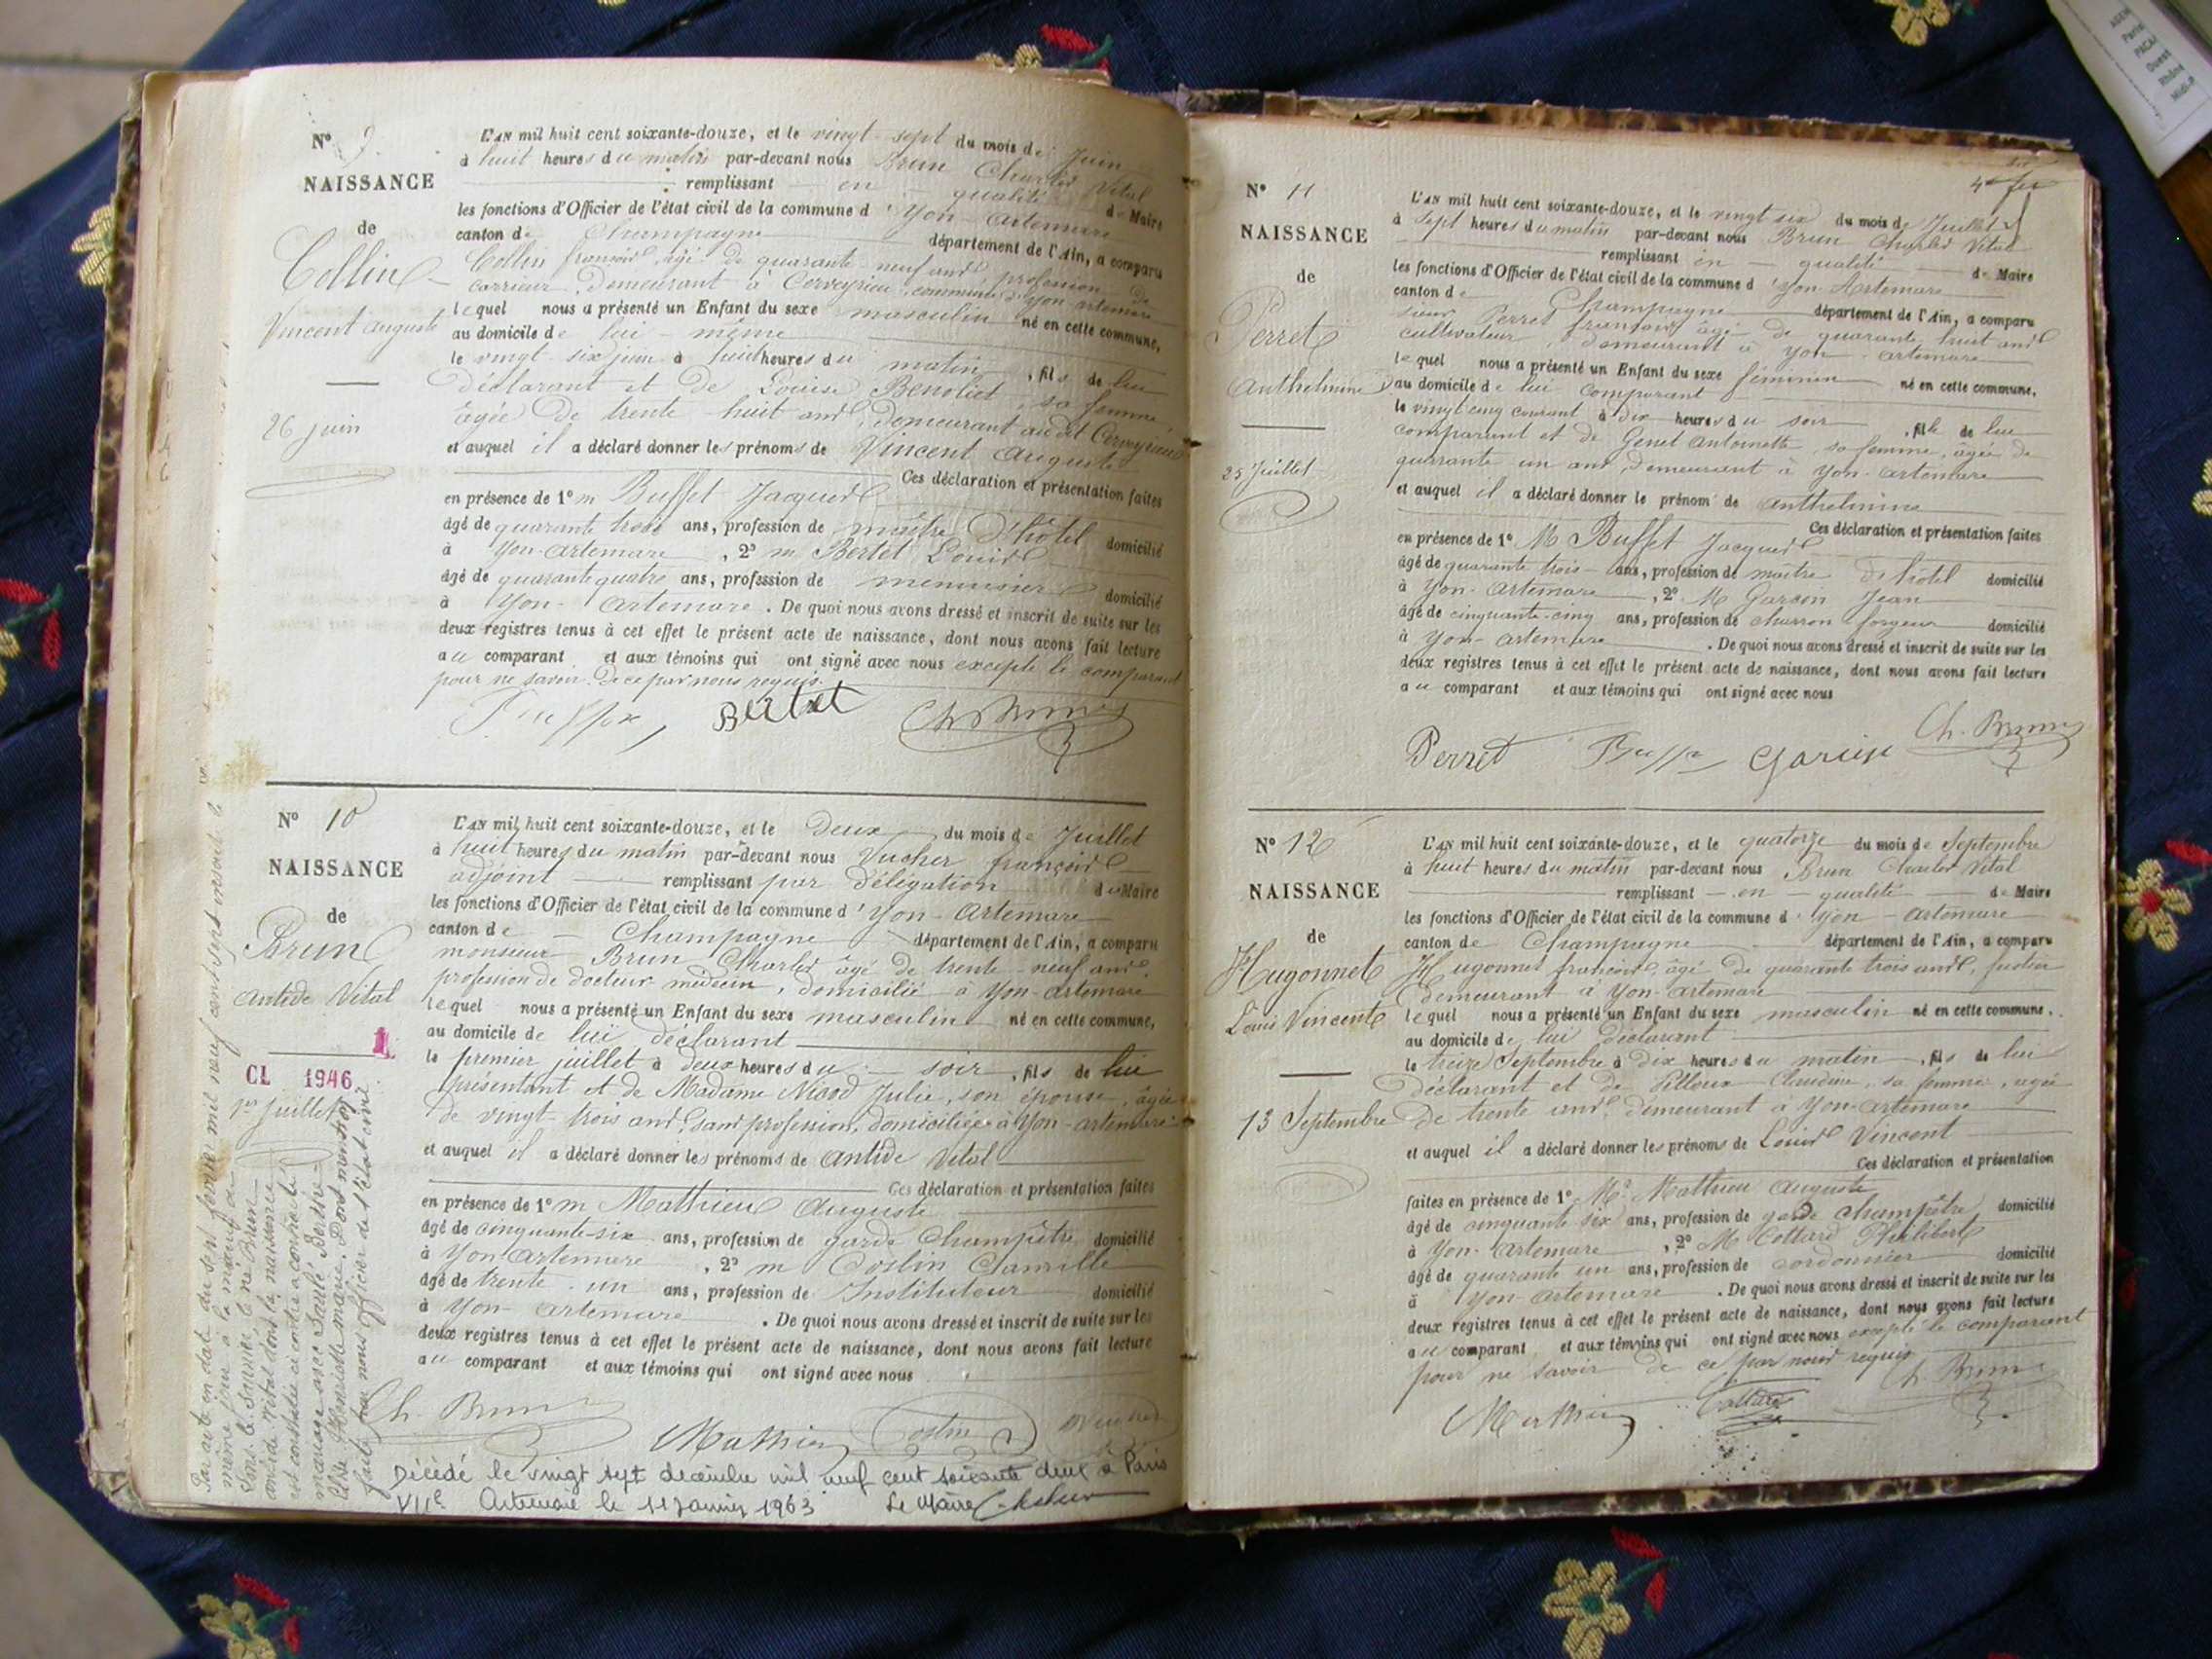 N° 9
NAISSANCE
de
Collin
Vincent Auguste
26 juin
L'AN mil huit cent soixante-douze, et le vingt-sept du mois de Juin
à huit heures du matin par-devant nous Brun Charles Vital
remplissant en qualité de Maire
les fonctions d'Officier de l'état civil de la commune d'Yon-Artemare
canton de Champagne département de l'Ain, a comparu
Collin françois, âgé de quarante-neuf ans profession de
carrieur, demeurant à Cerveyrieu, commune d'Yon-artemare
lequel nous a présenté un Enfant du sexe masculin né en cette commune,
au domicile de lui-même
le vingt-six juin à huit heures du matin, fils de lui
déclarant et de Louise Benoliet sa femme
âgée de trente-huit ans, demeurant audit Cerveyrieu
et auquel il a déclaré donner les prénoms de Vincent Auguste
Ces déclaration et présentation faites
en présence de 1° m Buffet Jacques
âgé de quarante trois ans, profession de maître d'hôtel domicilié
à Yon-artemare, 2° m Bertet Louis
âgé de quarante quatre ans, profession de menuisier domicilié
à Yon-Artemare. De quoi nous avons dressé et inscrit de suite sur les
deux registres tenus à cet effet le présent acte de naissance, dont nous avons fait lecture
au comparant et aux témoins qui ont signé avec nous excepté le comparant
pour ne savoir de ce par nous requis.
Bertet Ch Brun
N° 10
NAISSANCE
de
Brun
Antide Vital
1
CL 1946
1er Juillet
L'AN mil huit cent soixante-douze, et le deux du mois de Juillet
à huit heures du matin par-devant nous Vucher françois
adjoint remplissant par délégation du Maire
les fonctions d'Officier de l'état civil de la commune d'Yon-Artemare
canton de Champagne département de l'Ain, a comparu
monsieur Brun Charles âgé de trente-neuf ans,
profession de docteur médecin, domicilié à Yon-Artemare
lequel nous a présenté un Enfant du sexe masculin né en cette commune,
au domicile de lui déclarant
le premier juillet à deux heures du soir, fils de lui
présentant et de Madame Nicod Julie, son épouse, âgée
de vingt-trois ans, sans profession, domiciliée à Yon-artemare
et auquel il a déclaré donner les prénoms de Antide Vital
Ces déclaration et présentation faites
en présence de 1° m Mathieu Auguste
âgé de cinquante-six ans, profession de garde Champêtre domicilié
à Yon Artemare, 2° m Costin Camille
âgé de trente-un ans, profession de Instituteur domicilié
à Yon-Artemare. De quoi nous avons dressé et inscrit de suite sur les
deux registres tenus à cet effet le présent acte de naissance, dont nous avons fait lecture
au comparant et aux témoins qui ont signé avec nous
Ch. Brun Mathieu Costin Vucher
Décédé le vingt sept décembre mil neuf cent soixante deux à Paris
VIIe Artemare le 11 Janvier 1963 Le Maire
Par acte en date du sept février mil neuf cent sept inscrit le
même jour à la mairie de
le né Brun
antide Vital dont la naissance
est constatée ci contre a contracté
mariage avec Berthe
Henriette Marie. Dont mention
faite par nous officier de l'état civil.
N° 11
NAISSANCE
de
Perret
Anthelmine
25 Juillet
L'AN mil huit cent soixante-douze, et le vingt six du mois de Juillet
à sept heures du matin par-devant nous Brun Charles Vital
remplissant en qualité de Maire
les fonctions d'Officier de l'état civil de la commune d'Yon-Artemare
canton de Champagne département de l'Ain, a comparu
sieur Perret françois âgé de quarante huit ans
cultivateur, demeurant à Yon-artemare
lequel nous a présenté un Enfant du sexe féminin né en cette commune,
au domicile de lui comparant
le vingt cinq courant à dix heures du soir, fille de lui
comparant et de Genet Antoinette, sa femme, âgée de
quarante un ans, demeurant à Yon-artemare
et auquel il a déclaré donner le prénom de Anthelmine
Ces déclaration et présentation faites
en présence de 1° M Buffet Jacques
âgé de quarante trois ans, profession de maître d'hôtel domicilié
à Yon-Artemare, 2° M Garcon Jean
âgé de cinquante-cinq ans, profession de charron forgeur domicilié
à Yon-artemare. De quoi nous avons dressé et inscrit de suite sur les
deux registres tenus à cet effet le présent acte de naissance, dont nous avons fait lecture
au comparant et aux témoins qui ont signé avec nous
Perret Ch. Brun
N° 12
NAISSANCE
de
Hugonnet
Louis Vincent
13 Septembre
L'AN mil huit cent soixante-douze, et le quatorze du mois de Septembre
à huit heures du matin par-devant nous Brun Charles Vital
remplissant en qualité de Maire
les fonctions d'Officier de l'état civil de la commune d'Yon-Artemare
canton de Champagne département de l'Ain, a comparu
Hugonnet françois, âgé de quarante trois ans,
demeurant à Yon-artemare
lequel nous a présenté un Enfant du sexe masculin né en cette commune,
au domicile de lui déclarant
le treize Septembre à dix heures du matin, fils de lui
déclarant et de Pilloux Claudine, sa femme, agée
de trente ans, demeurant à Yon-artemare
et auquel il a déclaré donner les prénoms de Louis Vincent
Ces déclaration et présentation
faites en présence de 1° Mr Mathieu Auguste
âgé de cinquante six ans, profession de garde champêtre domicilié
à Yon-Artemare, 2° M Cottard Philibert
âgé de quarante un ans, profession de cordonnier domicilié
à Yon-artemare. De quoi nous avons dressé et inscrit de suite sur les
deux registres tenus à cet effet le présent acte de naissance, dont nous avons fait lecture
au comparant et aux témoins qui ont signé avec nous excepté le comparant
pour ne savoir de ce par nous requis
Mathieu Cottard Ch. Brun